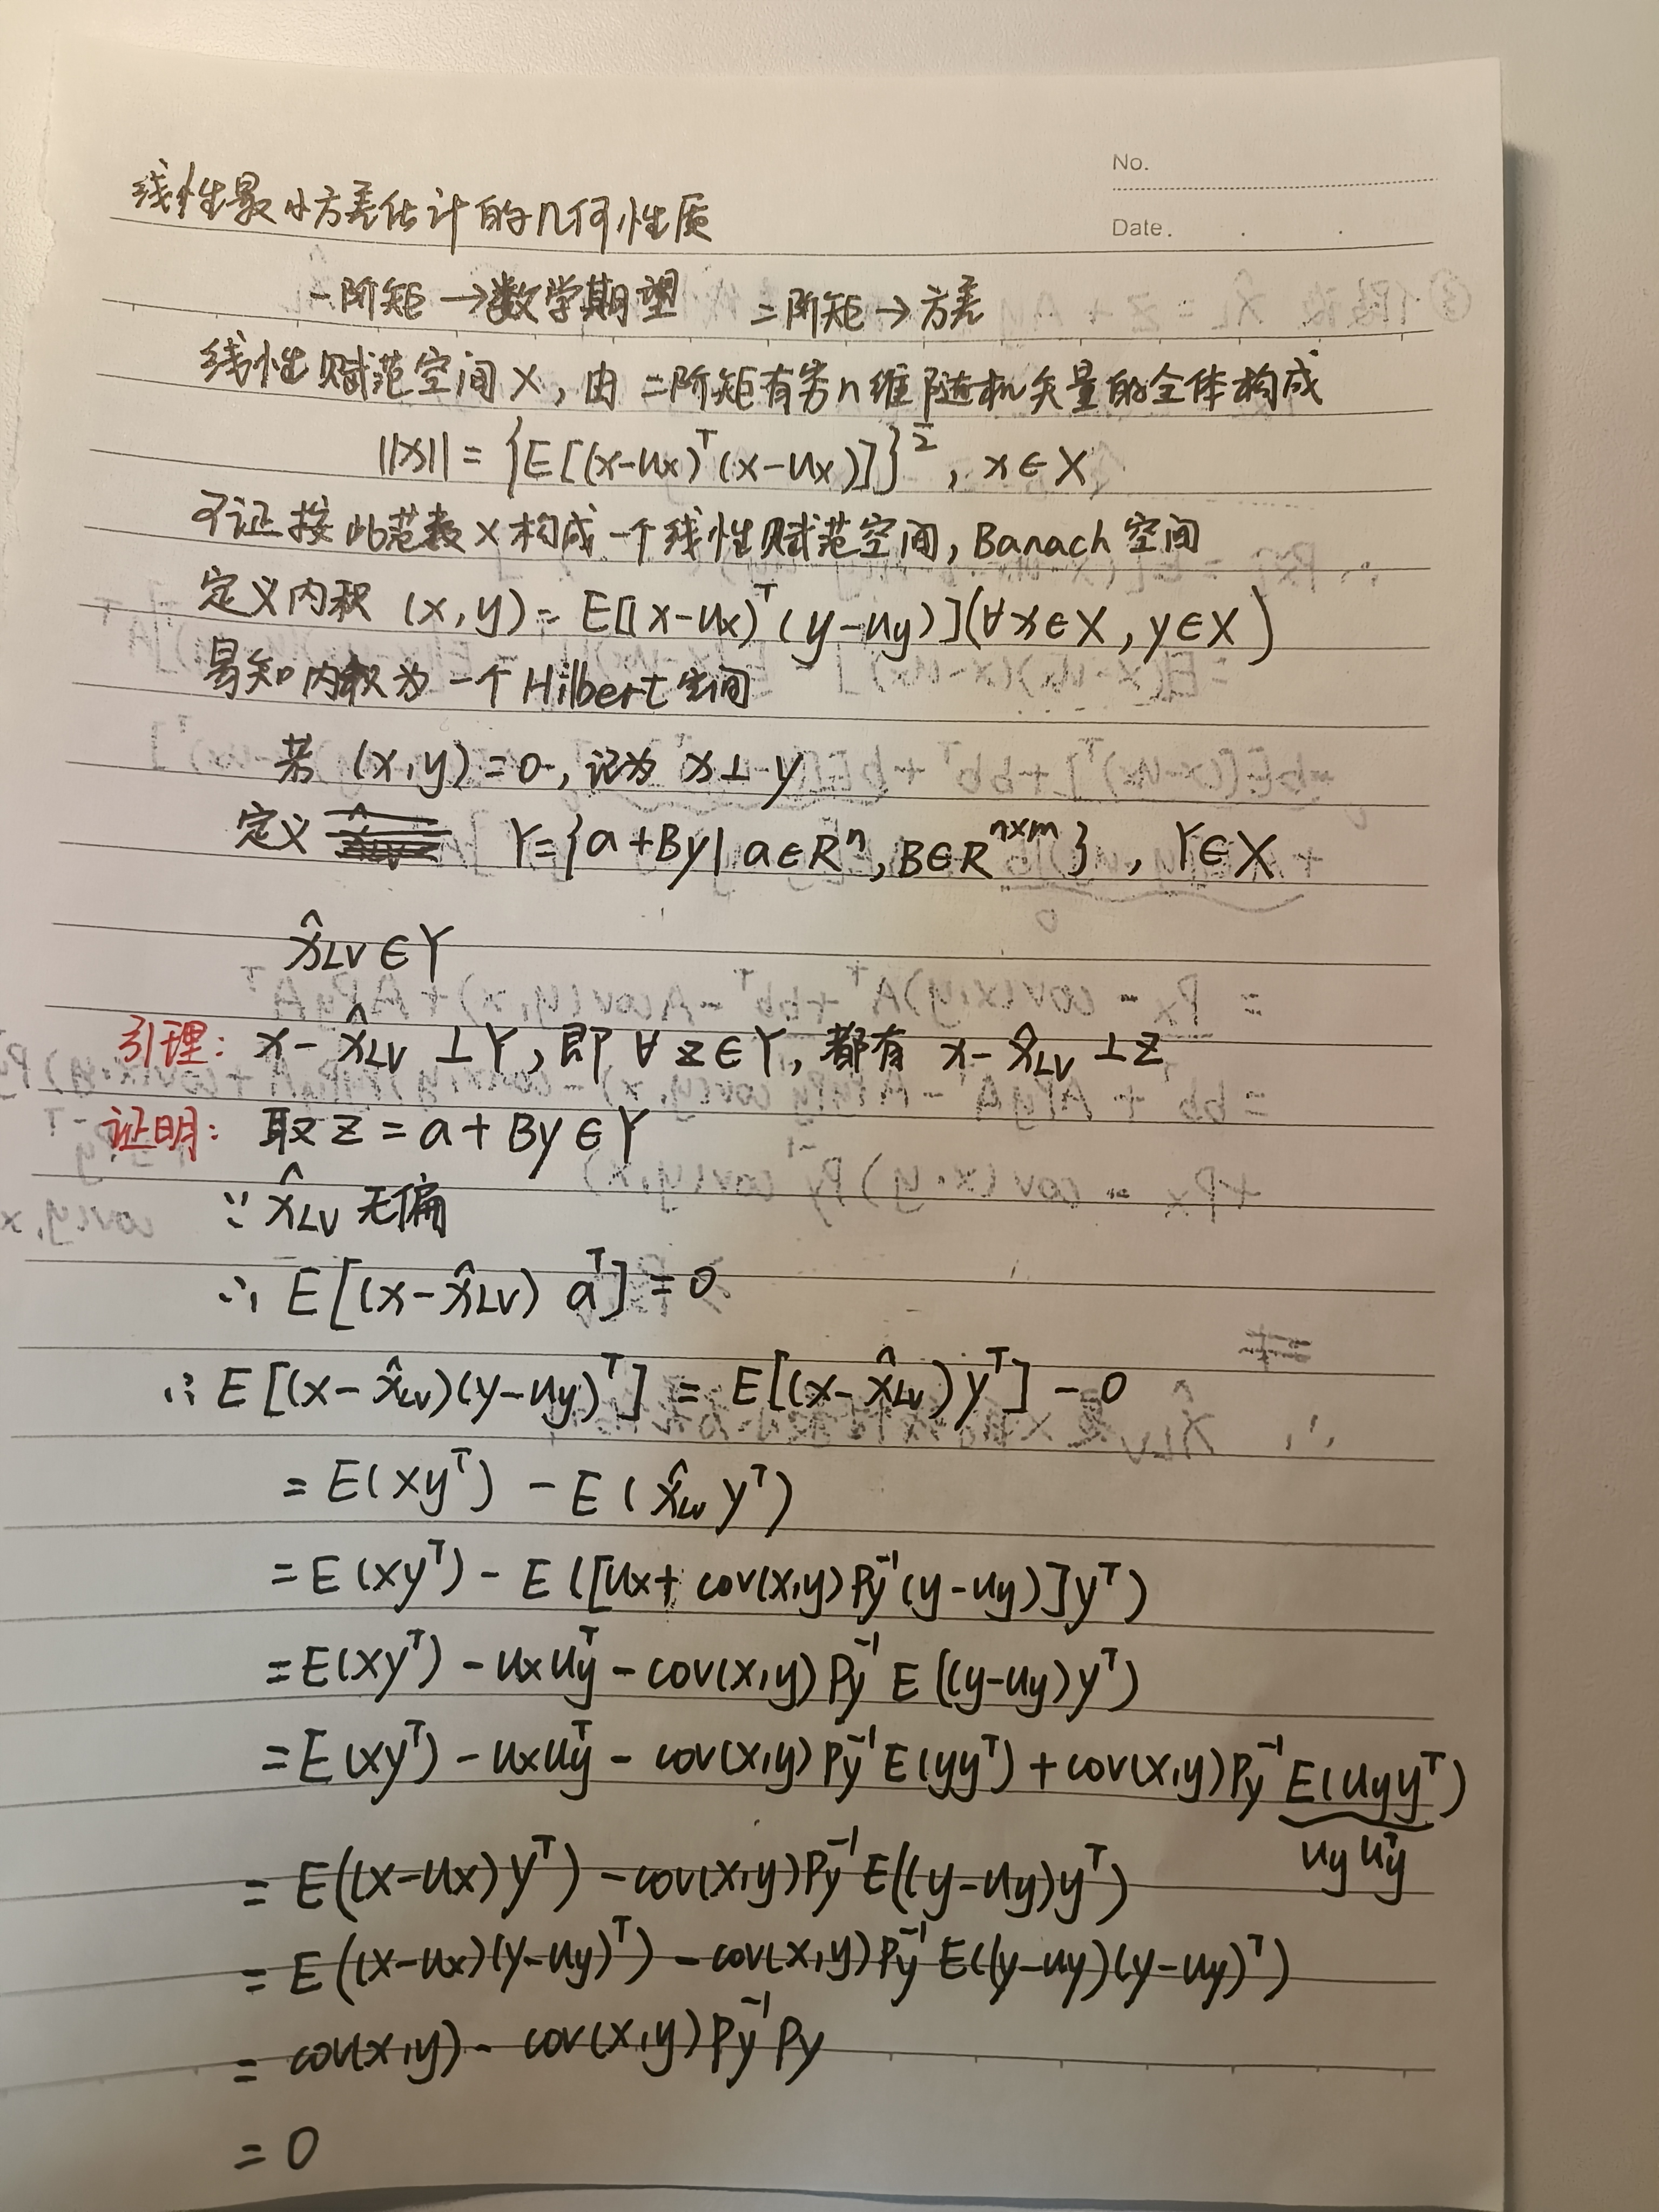 No.
Date.
线性最小方差估计的几何性质
一阶矩→数学期望 二阶矩→方差
线性赋范空间X,由二阶矩有穷n维随机矢量的全体构成
||x|| = {E[(x-ux)ᵀ(x-ux)]}^½, x∈X
可证按此范数X构成一个线性赋范空间,Banach空间
定义内积 (x,y) = E[(x-ux)ᵀ(y-uy)](∀x∈X,y∈X)
易知内积为一个Hilbert空间
若 (x,y)=0,记为 x⊥y
定义 Y={a+By|a∈Rⁿ,B∈Rⁿˣᵐ},Y∈X
x̂LV∈Y
引理: x-x̂LV⊥Y,即∀z∈Y,都有 x-x̂LV⊥z
证明: 取z=a+By∈Y
∵ x̂LV无偏
∴ E[(x-x̂LV)aᵀ]=0
∴ E[(x-x̂LV)(y-uy)ᵀ] = E[(x-x̂LV)yᵀ]-0
= E(xyᵀ) - E(x̂LV yᵀ)
= E(xyᵀ) - E([ux+cov(x,y)Py⁻¹(y-uy)]yᵀ)
= E(xyᵀ) - ux uyᵀ - cov(x,y)Py⁻¹E((y-uy)yᵀ)
= E(xyᵀ) - ux uyᵀ - cov(x,y)Py⁻¹E(yyᵀ) + cov(x,y)Py⁻¹E(uy yᵀ)
uy uyᵀ
= E((x-ux)yᵀ) - cov(x,y)Py⁻¹E((y-uy)yᵀ)
= E((x-ux)(y-uy)ᵀ) - cov(x,y)Py⁻¹E((y-uy)(y-uy)ᵀ)
= cov(x,y) - cov(x,y)Py⁻¹Py
= 0